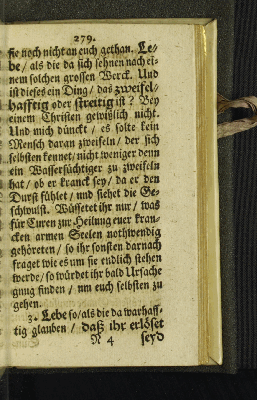 279.
sie noch nicht an euch gethan. Le-
be / als die da sich sehnen nach ei-
nem solchen grossen Werck. Und
ist dieses ein Ding / das zweifel-
hafftig oder streitig ist? Bey
einem Christen gewißlich nicht.
Und mich dünckt / es solte kein
Mensch daran zweifeln / der sich
selbsten kennet / nicht weniger denn
ein Wassersüchtiger zu zweifeln
hat / ob er kranck sey / da er den
Durst fühlet / und siehet die Ge-
schwulst. Wüssetet ihr nur / was
für Curen zur Heilung euer kran-
cken armen Seelen nothwendig
gehöreten / so ihr sonsten darnach
fraget wie es um sie endlich stehen
werde / so würdet ihr bald Ursache
gnug finden / um euch selbsten zu
gehen.
3. Lebe so / als die da warhaff-
tig glauben / daß ihr erlöset
N 4 seyd